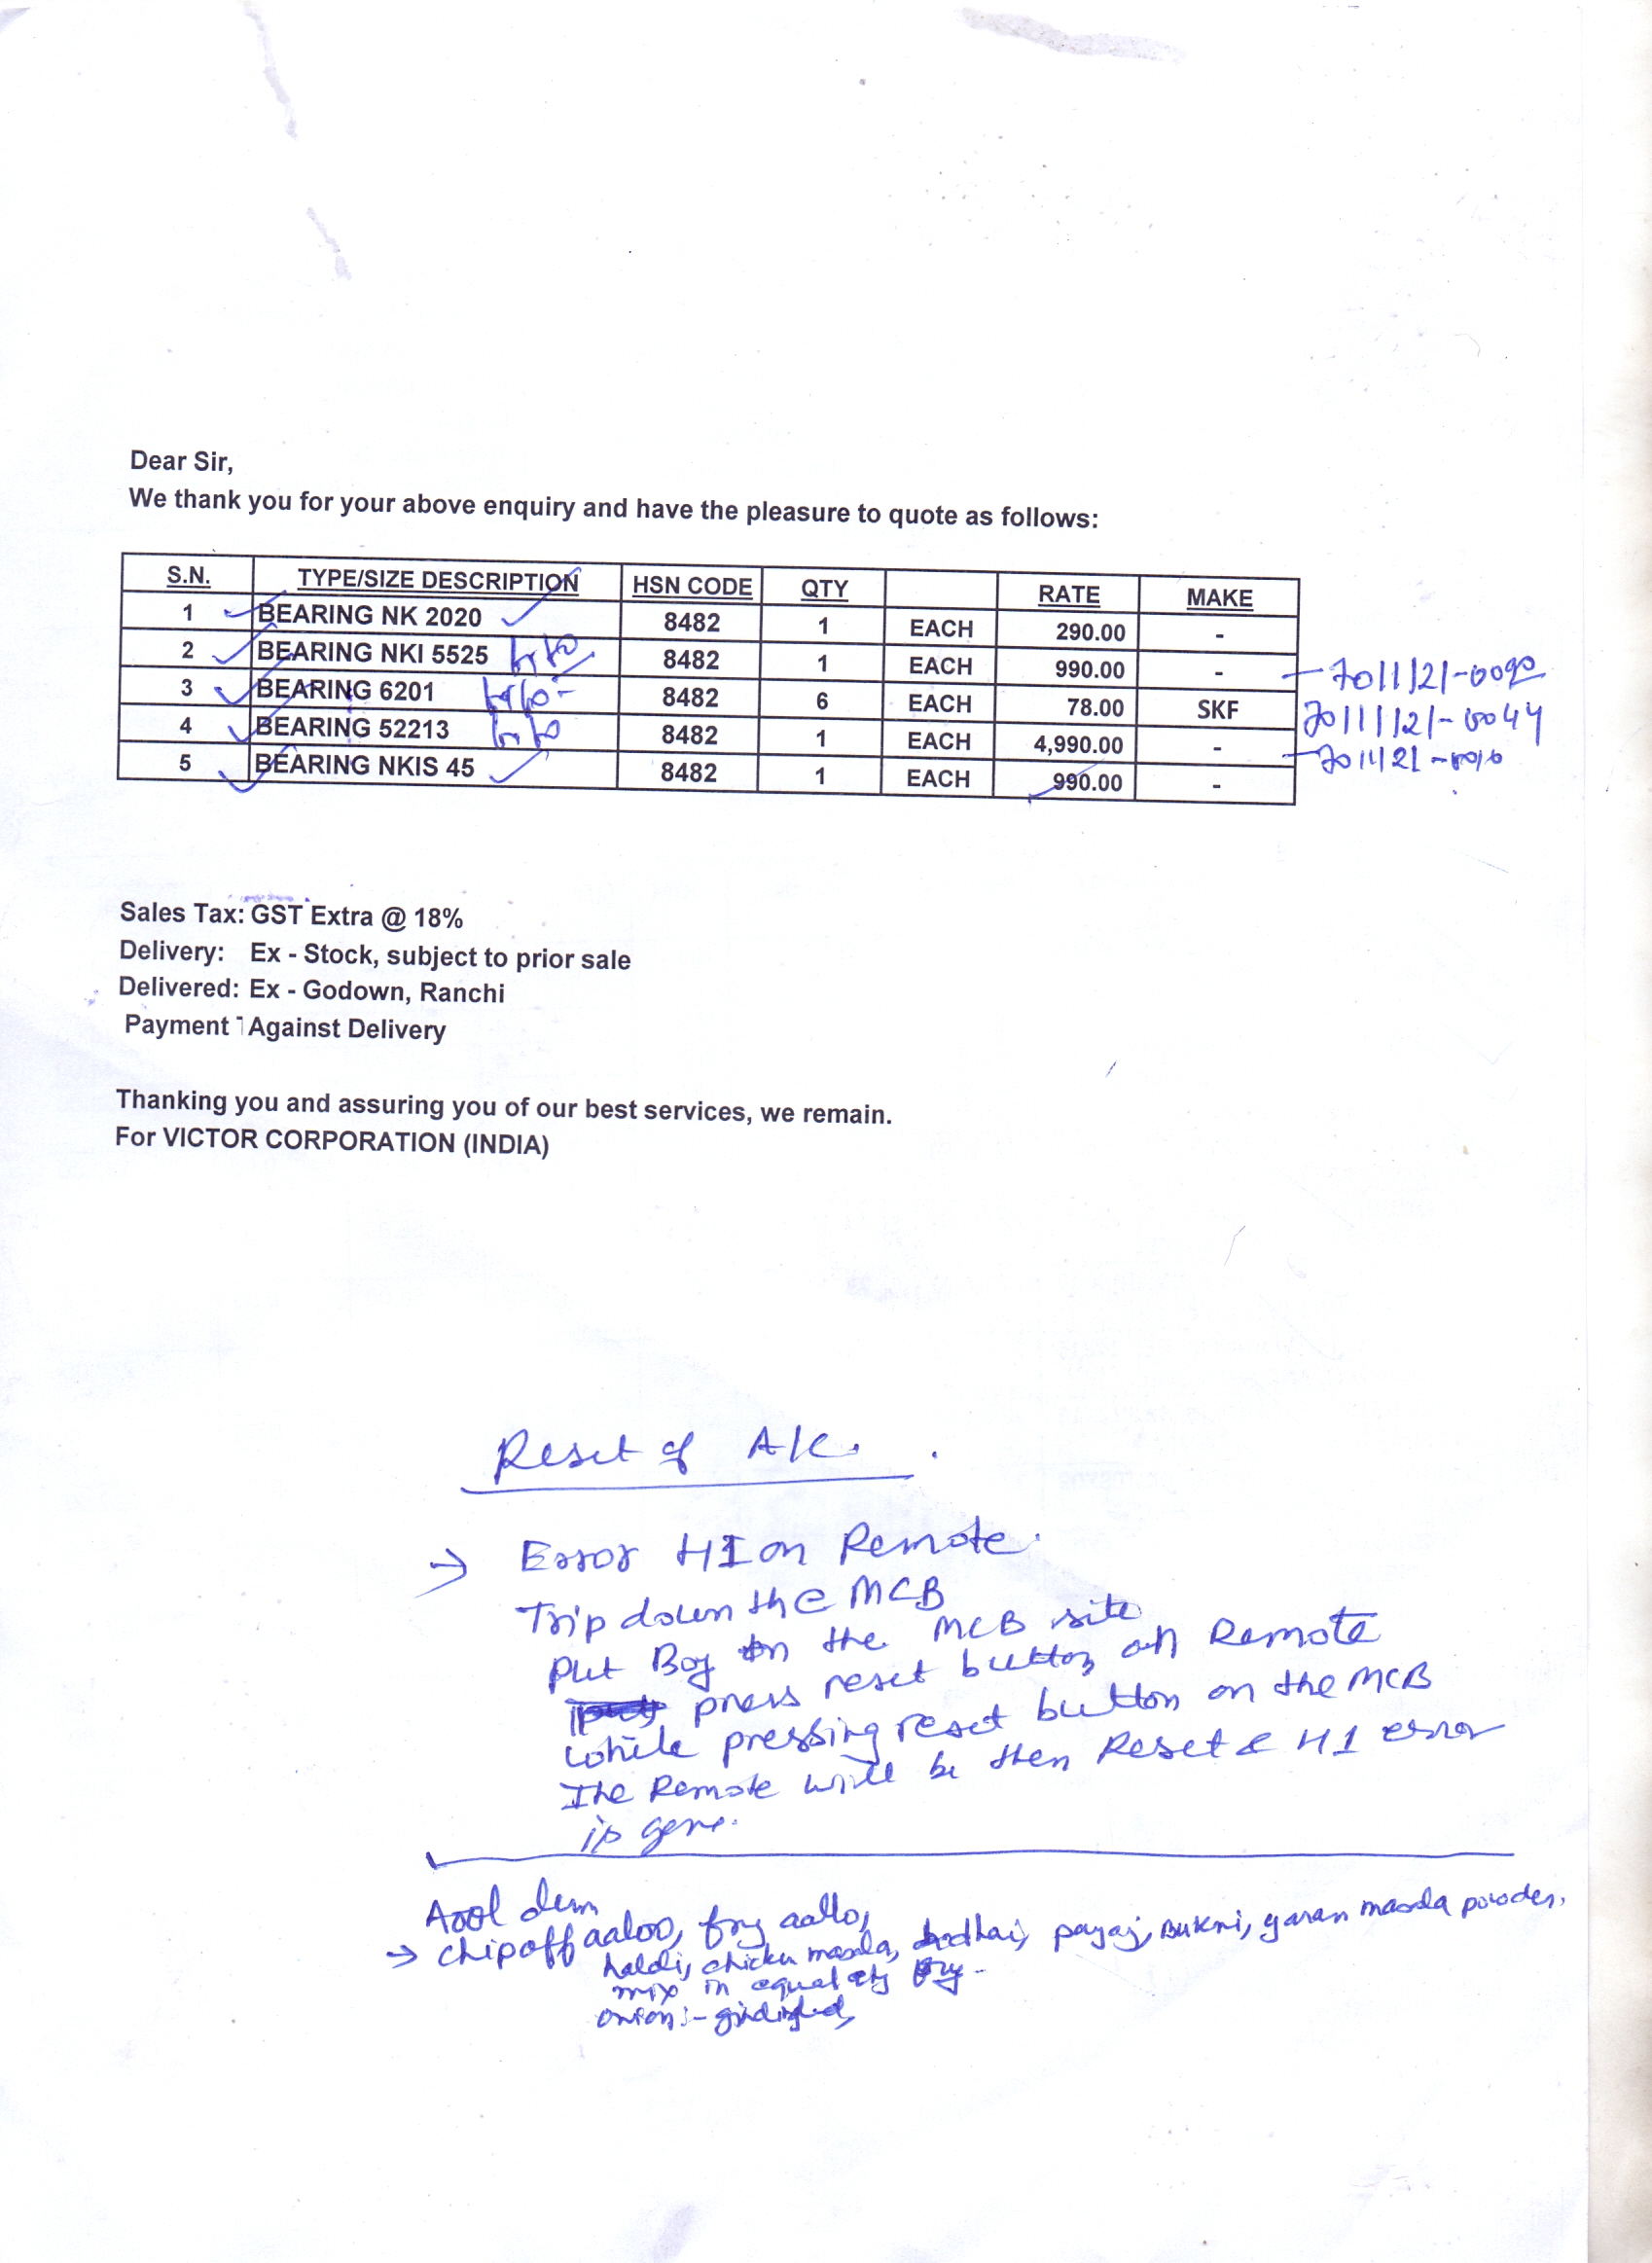 Dear Sir,
We thank you for your above enquiry and have the pleasure to quote as follows:
S.N. TYPE/SIZE DESCRIPTION HSN CODE QTY RATE MAKE
1 BEARING NK 2020 8482 1 EACH 290.00 -
2 BEARING NKI 5525 8482 1 EACH 990.00 -
3 BEARING 6201 8482 6 EACH 78.00 SKF
4 BEARING 52213 8482 1 EACH 4,990.00 -
5 BEARING NKIS 45 8482 1 EACH 990.00 -
Sales Tax: GST Extra @ 18%
Delivery: Ex - Stock, subject to prior sale
Delivered: Ex - Godown, Ranchi
Payment Against Delivery
Thanking you and assuring you of our best services, we remain.
For VICTOR CORPORATION (INDIA)
Reset of A/C.
→ Error H1 on Remote.
Trip down the MCB
Put Boy on the MCB site
press reset button on Remote
while pressing reset button on the MCB
The Remote will be then Reset & H1 error
is gone.
→ chipoff aaloo, fry aallo,
haldi, masala, payaj, garam masala powder,
mix in
onion :-